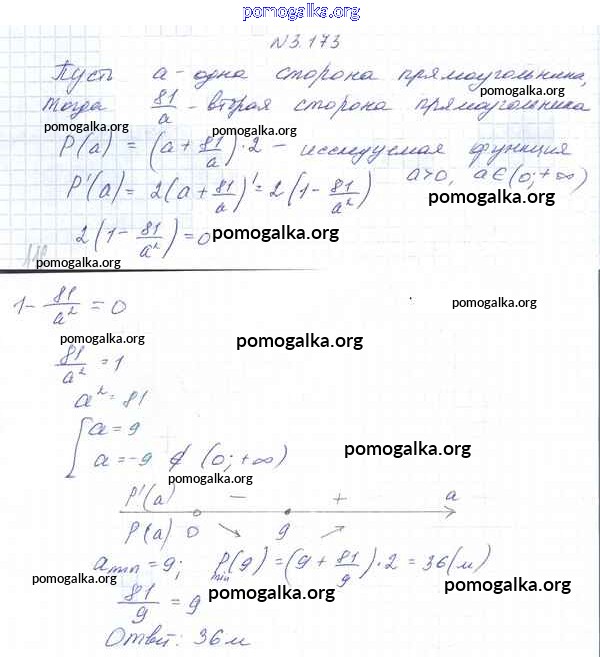 pomogalka.org
N3.173
Пусть a - одна сторона прямоугольника,
тогда 81/a - вторая сторона прямоугольника
pomogalka.org pomogalka.org
P(a) = (a + 81/a)·2 - исследуемая функция
P'(a) = 2(a + 81/a)' = 2(1 - 81/a²) a>0, a∈(0;+∞)
pomogalka.org
2(1 - 81/a²) = 0 pomogalka.org
pomogalka.org
1 - 81/a² = 0 pomogalka.org
pomogalka.org pomogalka.org
81/a² = 1
a² = 81
[a = 9
a = -9 ∉ (0;+∞) pomogalka.org
pomogalka.org
P'(a) - + a
P(a) 0 ↘ 9 ↗
a min = 9; P min (9) = (9 + 81/9)·2 = 36(м)
pomogalka.org pomogalka.org pomogalka.org
81/9 = 9
Ответ: 36м